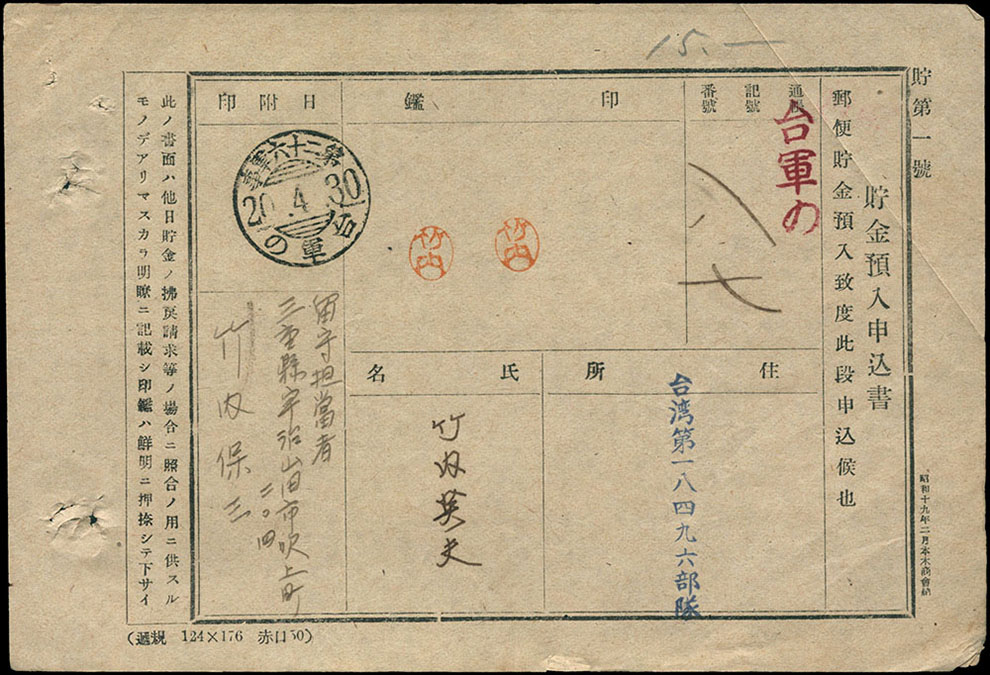 15.—
貯第一號
貯金預入申込書
昭和十九年二月本木商會納
郵便貯金預入致度此段申込候也
通帳
記號
番號
台軍の
八七
印鑑
竹内
竹内
日附印
第二十六軍事
20.4.30
台軍の
住所
台湾第一八四九六部隊
氏名
竹内英夫
留守担當者
三重縣宇治山田市吹上町
二〇四
竹内保三
此ノ書面ハ他日貯金ノ拂戻請求等ノ場合ニ照合ノ用ニ供スル
モノデアリマスカラ明瞭ニ記載シ印鑑ハ鮮明ニ押捺シテ下サイ
(逓規 124×176 赤口50)